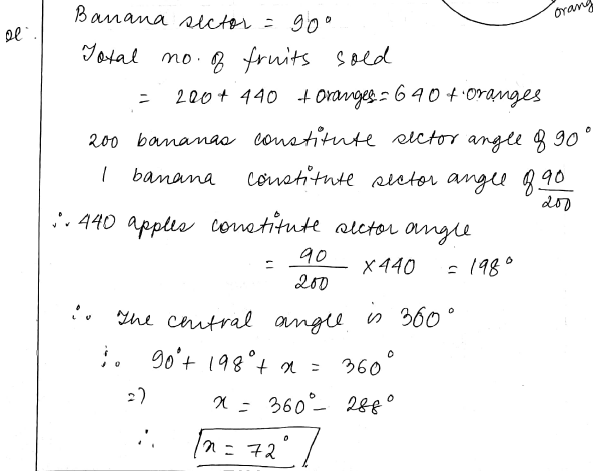 orang
Qe.
Banana sector = 90°
Total no. of fruits sold
= 200 + 440 + oranges = 640 + oranges
200 bananas constitute sector angle of 90°
1 banana constitute sector angle of 90/200
∴ 440 apples constitute sector angle
= 90/200 × 440 = 198°
∴ The central angle is 360°
∴ 90° + 198° + x = 360°
=) x = 360° - 288°
∴ x = 72°